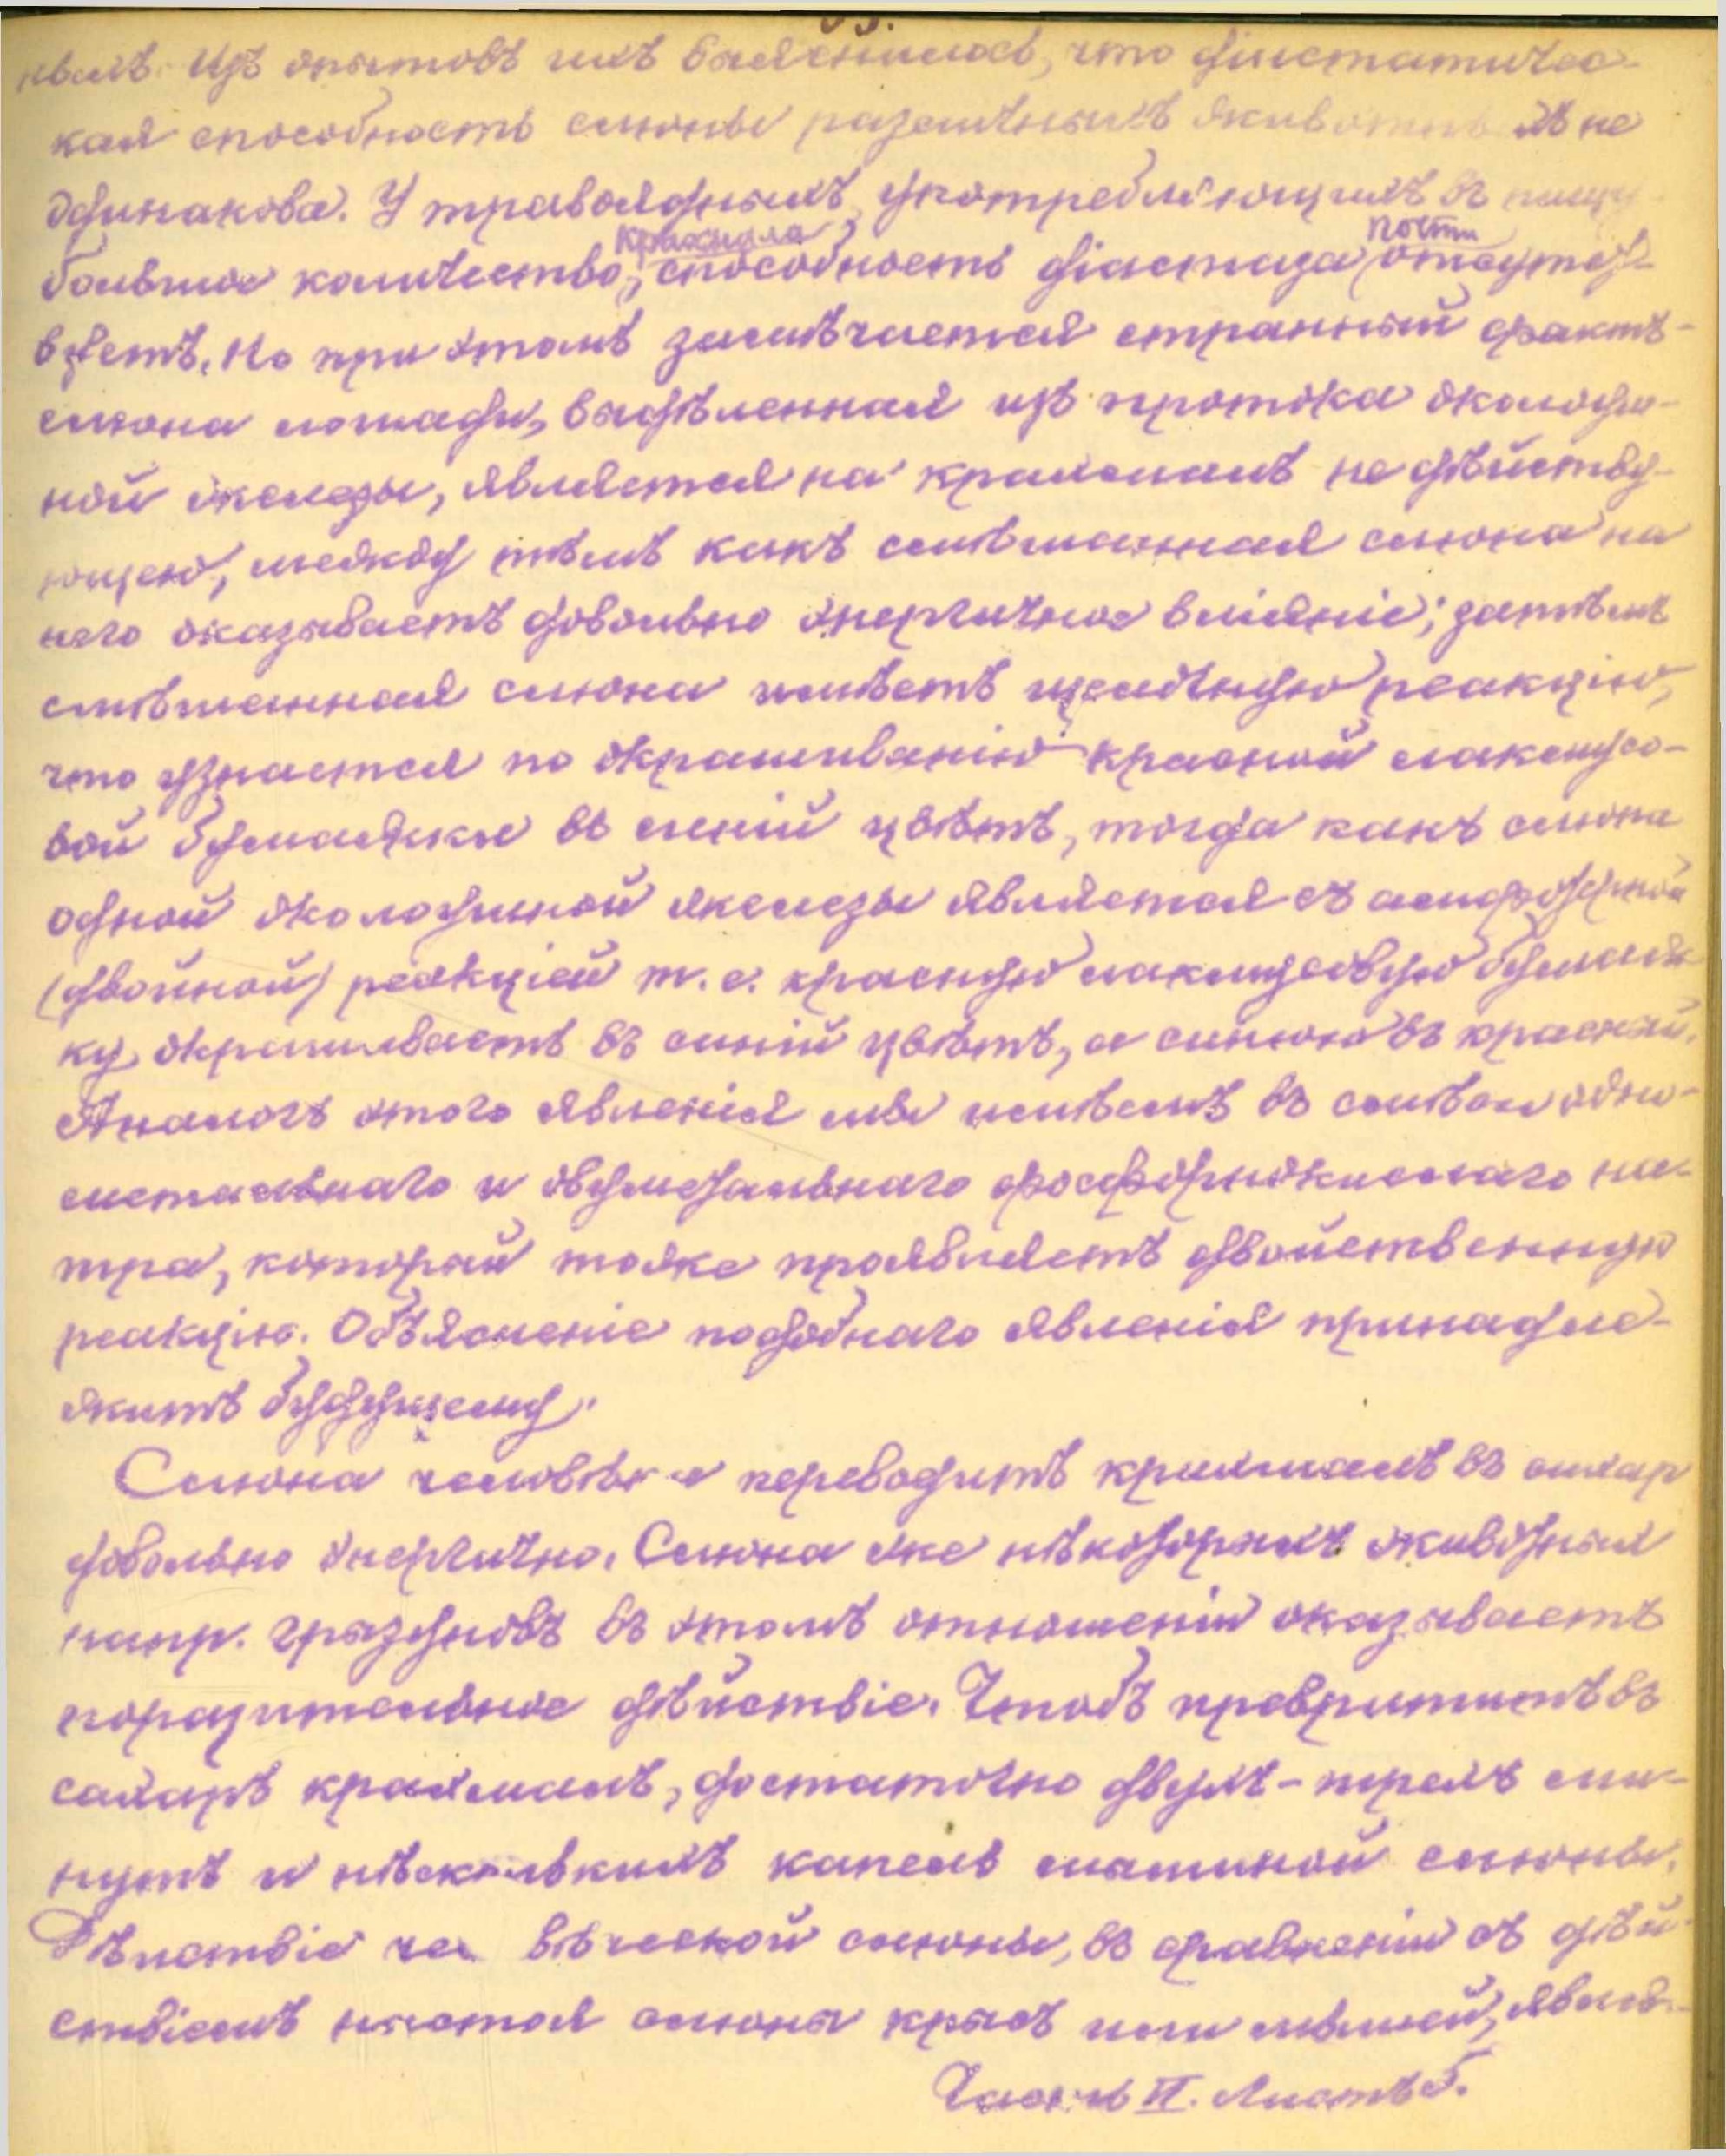 Изъ опытовъ ихъ выяснилось, что діастатичес-
кая способность слюны различныхъ животныхъ не
одинакова. У травоядныхъ, употребляющихъ въ пищу
крахмала почти
большое количество, способность діастаза отсутст-
вуетъ. Но при этомъ замѣчается странный фактъ-
слюна лошади, выдѣленная изъ протока околоуш-
ной железы, является на крахмалъ не дѣйству-
ющею, между тѣмъ какъ смѣшанная слюна на
него оказываетъ довольно энергичное вліяніе; затѣмъ
смѣшанная слюна имѣетъ щелочную реакцію,
что узнается по окрашиванію красной лакмусо-
вой бумажки въ синій цвѣтъ, тогда какъ слюна
одной околоушной железы является съ амфотерной
(двойной) реакціей т.е. красную лакмусовую бумаж
ку окрашиваетъ въ синій цвѣтъ, а синюю въ красный.
Аналогъ этого явленія мы имѣемъ въ смѣси одно-
металльнаго и двуметальнаго фосфорнокислаго на-
тра, который тоже проявляетъ двойственную
реакцію. Объясненіе подобнаго явленія принадле-
житъ будущему.
Слюна человѣка переводитъ крахмалъ въ сахар
довольно энергично. Слюна же нѣкоторыхъ животных
напр. грызуновъ въ этомъ отношеніи оказываетъ
поразительное дѣйствіе. Чтобъ превратить въ
сахаръ крахмалъ, достаточно двухъ-трехъ ми-
нутъ и нѣсколькихъ капель слюны.
Дѣйствіе че вѣческой слюны, въ сравненіи съ дѣй
ствіемъ настоя слюны крысъ или мышей, явля-
Часть II. Листъ 5.